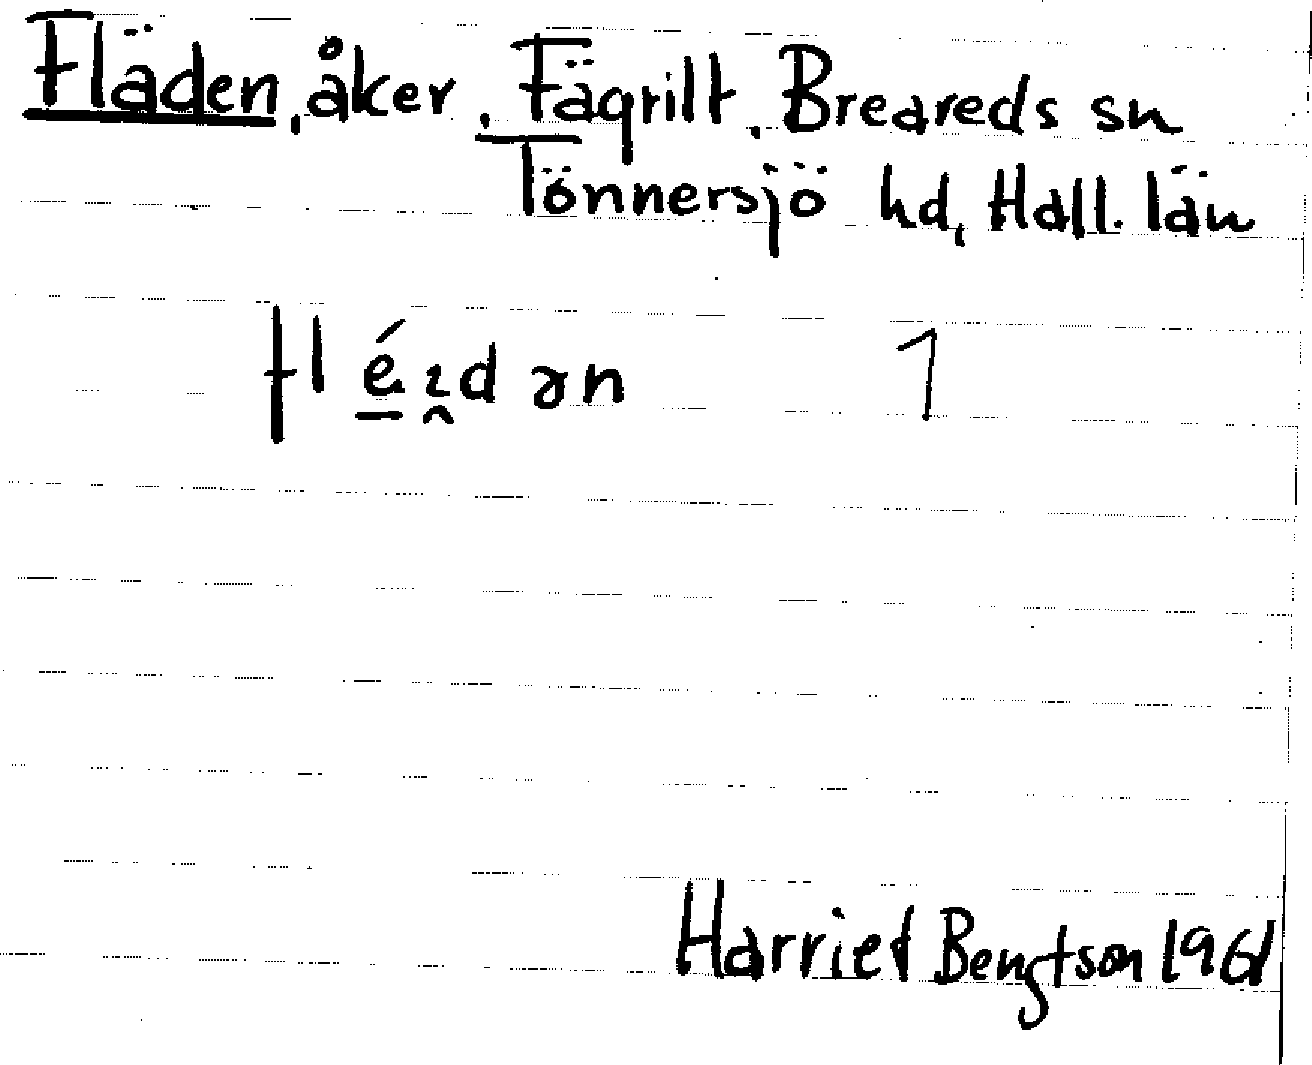 Fläden, åker, Fägrilt, Breareds sn
Tönnersjö hd, Hall. län
1
Harriet Bengtson 1961